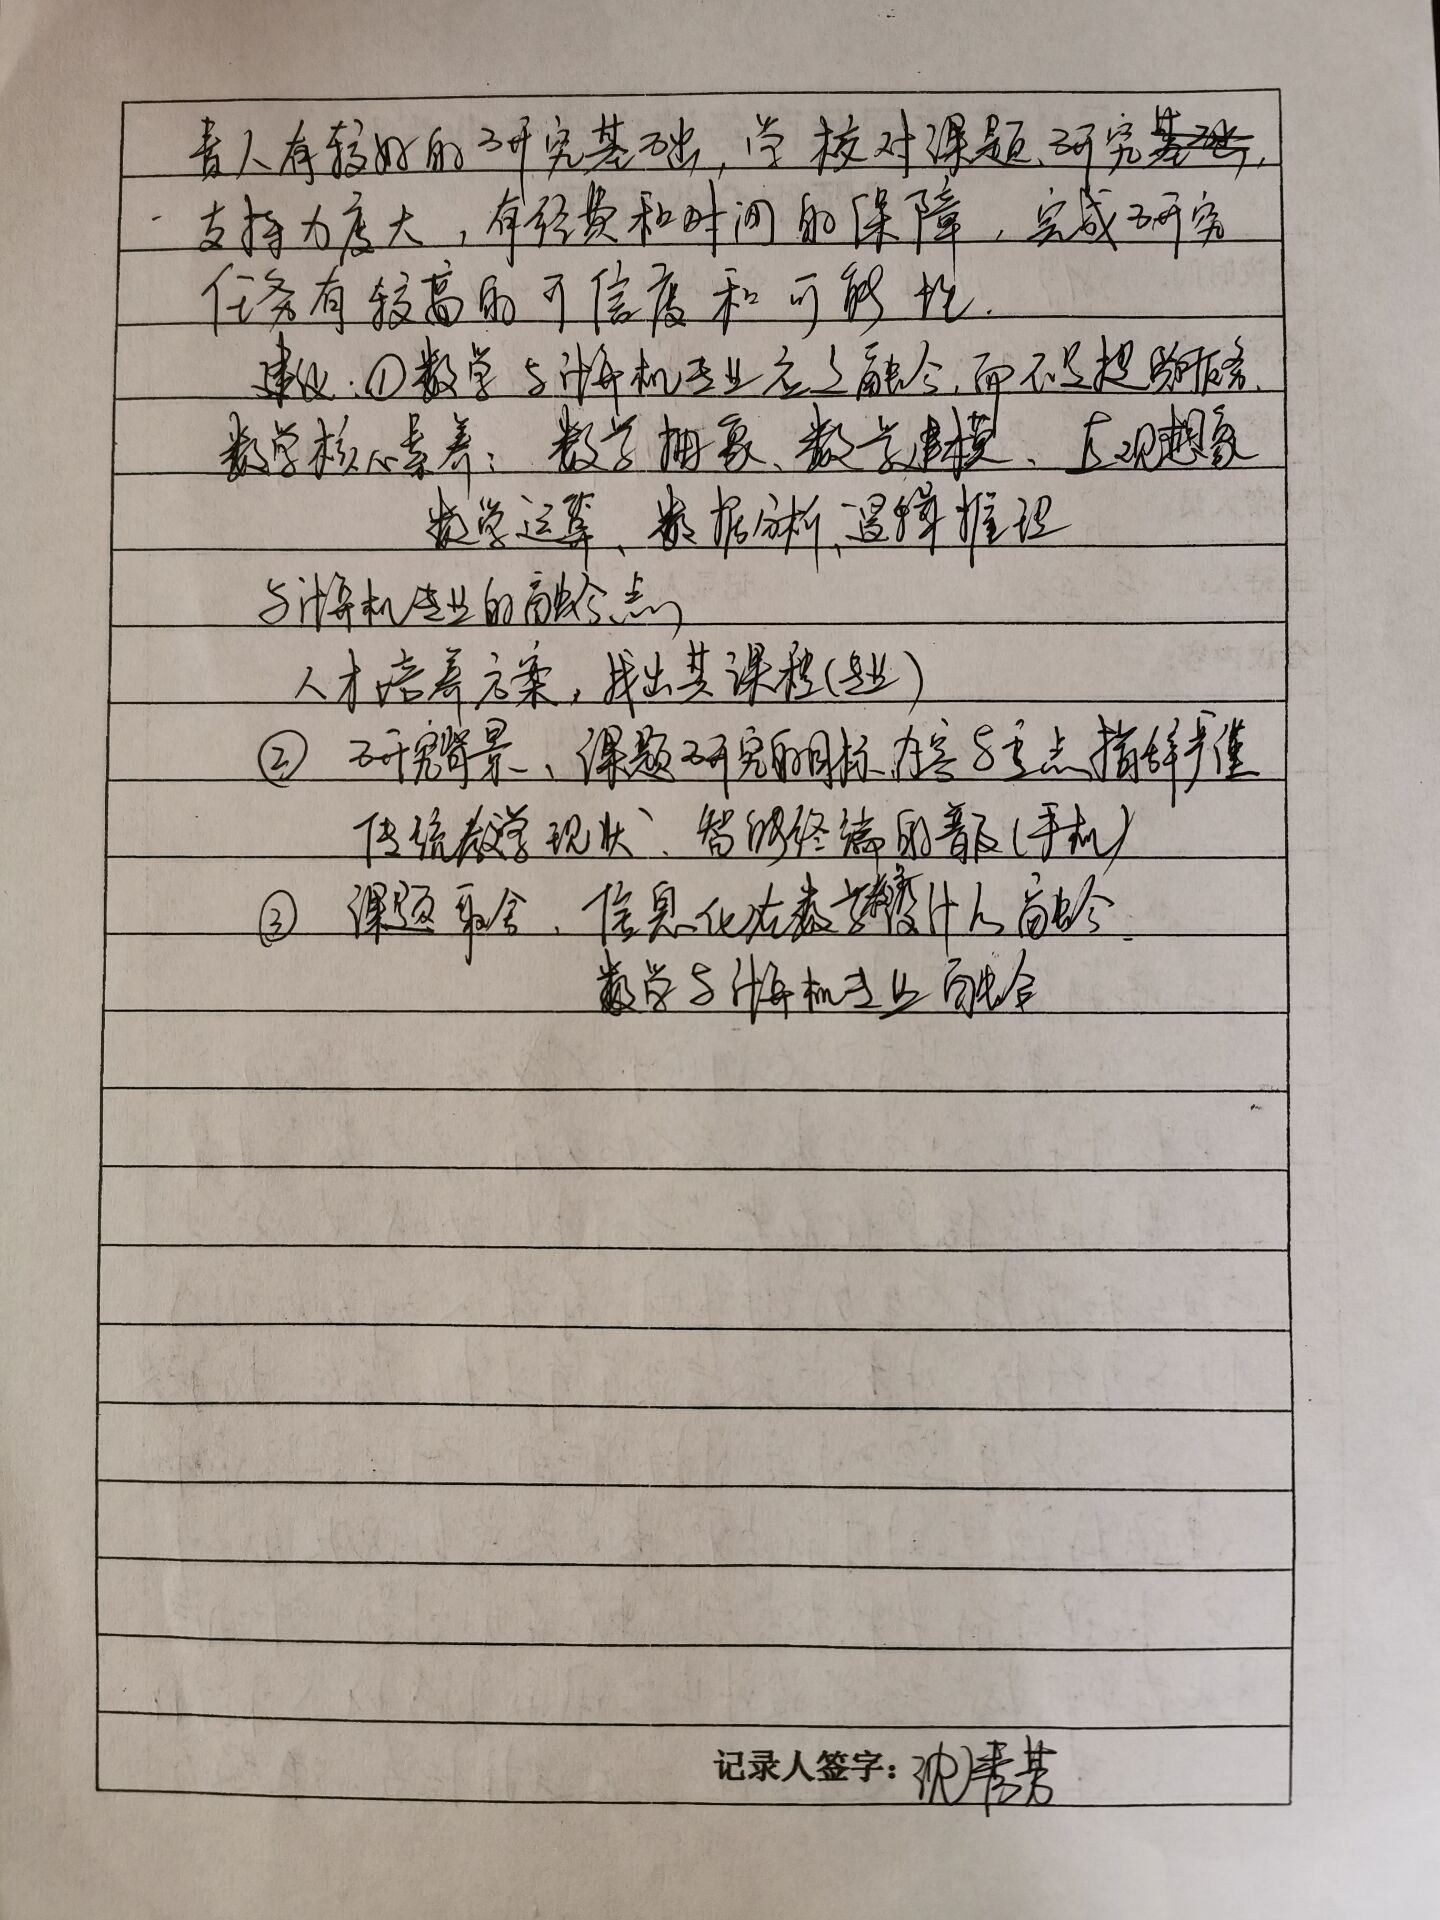 责人有较好的研究基础，学校对课题研究基础，
支持力度大，有经费和时间的保障，完成研究
任务有较高的可信度和可能性.
建议：①数学与计算机专业怎么融合，而不是提
数学核心素养：数学抽象、数学建模、直观想象
数学运算、数据分析、逻辑推理
与计算机专业的融合点，
人才培养方案，找出其课程(专业)
② 研究背景、课题研究的目标、内容与重点、措辞严谨
传统教学现状、智能终端的普及(手机)
③ 课题取舍、信息化在数学教学设计融合.
数学与计算机专业融合
记录人签字：沈秀芳